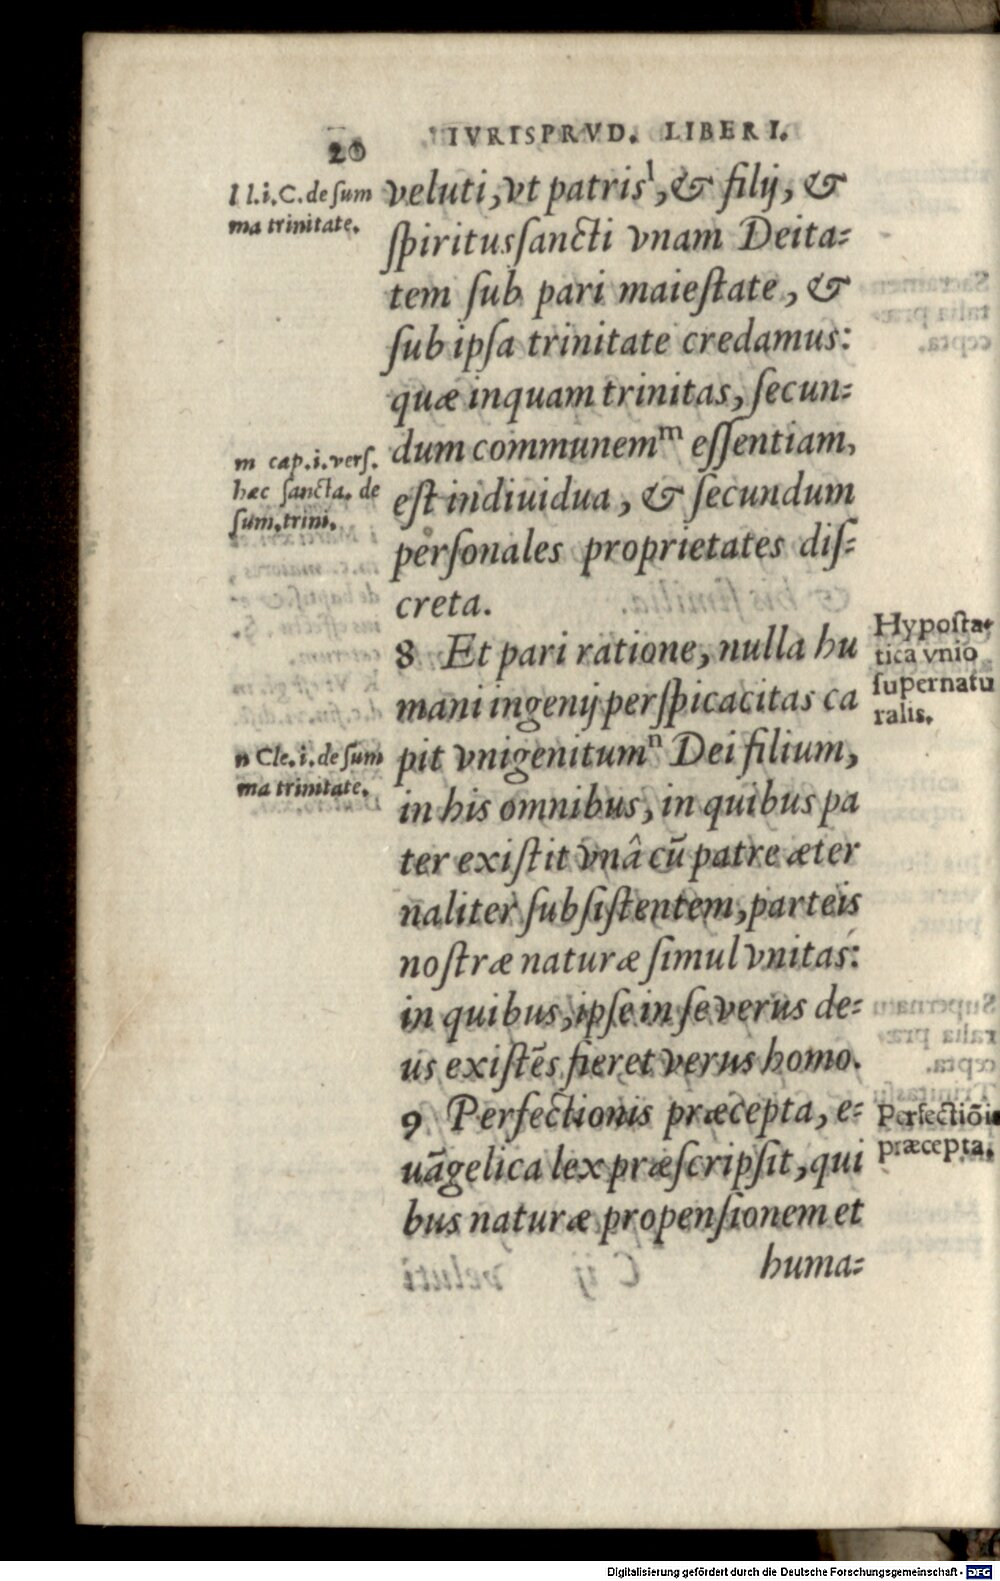 20 IVRISPRVD. LIBER I.
l l.i.C. de sum
ma trinitate.
veluti, vt patris l, & filij, &
spiritussancti vnam Deita=
tem sub pari maiestate, &
sub ipsa trinitate credamus:
quæ inquam trinitas, secun=
dum communem m essentiam,
est indiuidua, & secundum
personales proprietates dis=
creta.
m cap.i. vers.
hæc sancta. de
sum. trini.
8 Et pari ratione, nulla hu
mani ingenij perspicacitas ca
pit vnigenitum n Dei filium,
in his omnibus, in quibus pa
ter existit vnâ cũ patre æter
naliter subsistentem, parteis
nostræ naturæ simul vnitas:
in quibus, ipse in se verus de=
us existẽs fieret verus homo.
Hyposta=
tica vnio
supernatu
ralis.
n Cle.i. de sum
ma trinitate.
9 Perfectionis præcepta, e=
uãgelica lex præscripsit, qui
bus naturæ propensionem et
huma=
Perfectiõis
præcepta.
Digitalisierung gefördert durch die Deutsche Forschungsgemeinschaft - DFG